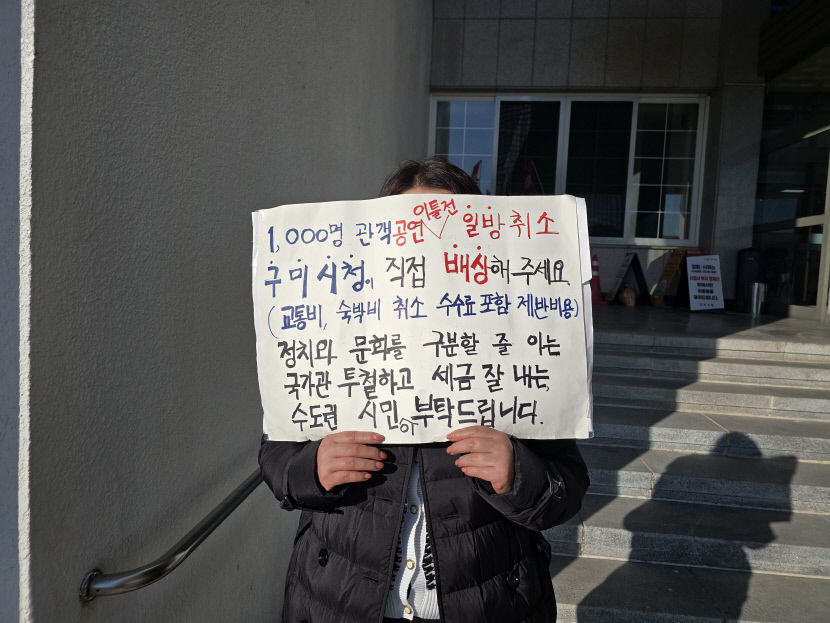 1,000명 관객 공연 이틀전 일방취소
구미시청이 직접 배상해 주세요.
(교통비, 숙박비 취소 수수료 포함 제반비용)
정치와 문화를 구분할 줄 아는
국가관 투철하고 세금 잘 내는,
수도권 시민이 부탁드립니다.